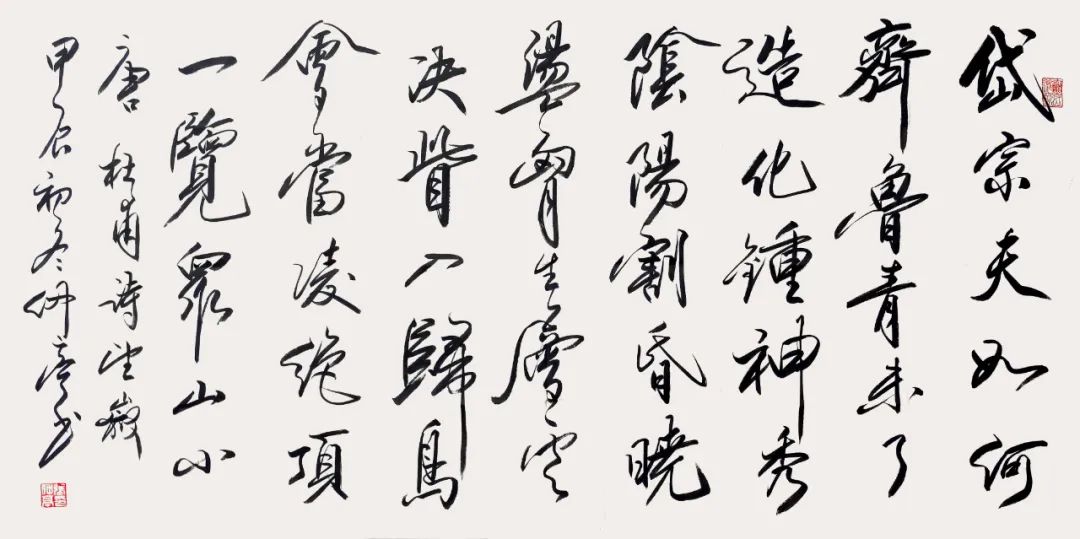 岱宗夫如何
齊魯青未了
造化鍾神秀
陰陽割昏曉
盪胷生層雲
決眥入歸鳥
會當凌絕頂
一覽眾山小
唐杜甫詩望嶽
甲辰初冬仲亭书